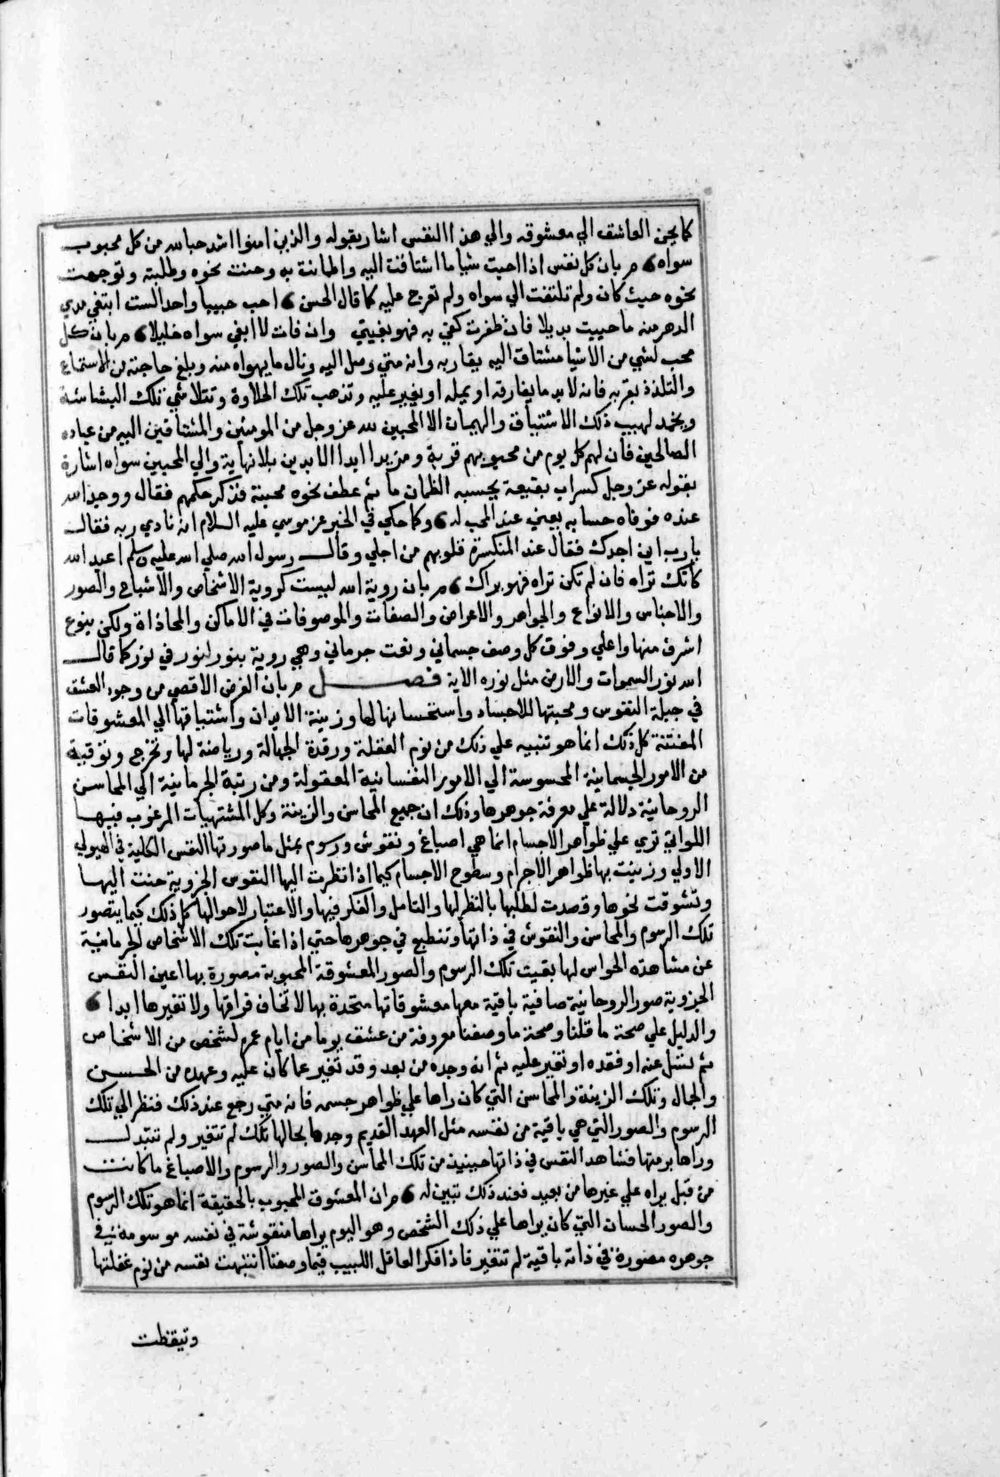 كما يحن العاشق الي معشوقه والي هذا النفس اشار بقوله والذين امنوا اشد حبا لله من كل محبوب
سواه م ربان كل نفس اذا احبت شيا ما اشتاقت اليه واطمانت به وحنت نحوه وطلبته وتوجهت
نحوه حيث كان ولم تلتفت الي سواه ولم تعرج عليه كما قال الحسن احب حبيبا واحدا لست ابتغي مدي
الدهر منه ما حييت بديلا فان ظفرت كفي به فهو بغيتي وان فات لا ابغي سواه خليلا م ربان كل
محب لشي من الاشيا مشتاق اليه يقاربه وانه متي وصل اليه ونال ما يهواه منه وبلغ حاجته من الاستمتاع
والتلذذ بقربه فانه لا بد ما يفارقه او يمله او يغير عليه وتذهب تلك الحلاوة وتتلاشي تلك البشاشة
ويخمد لهيب ذلك الاشتياق والهيمان الا المحبين لله عز وجل من المومنين والمشتاقين اليه من عباده
الصالحين فان لهم كل يوم من محبوبهم قربة ومزيدا ابد الابدين بلا نهاية والي المحبين سواه اشارة
بقوله عز وجل كسراب بقيعة يحسبه الظمان ما ثم عطف نحوه محبته فذكر حكمهم فقال ووجد الله
عنده فوفاه حسابه يعني عند المحب له وكما حكي في الخبر عز موسي عليه السلام انه نادي ربه فقال
يا رب اين اجدك فقال عند المنكسرة قلوبهم من اجلي وقال رسول الله صلي الله عليه وسلم اعبد الله
كانك تراه فان لم تكن تراه فهو يراك م ربان روية الله ليست كروية الاشخاص والاشباح والصور
والاجناس والانواع والجواهر والاعراض والصفات والموصوفات في الاماكن والمحاذاة ولكن بنوع
اشرف منها واعلي وفوق كل وصف جسماني ونعت جرماني وهي روية بنور لنور في نور كما قال
الله نور السموات والارض مثل نوره الاية فصل م ربان الغرض الاقصي من وجود العشق
في جبلة النفوس ومحبتها للاجساد واستحسانها لها وزينة الابدان واشتياقها الي المعشوقات
المفتنة كل ذلك انما هو تنبيه علي ذلك من نوم الغفلة ورقدة الجهالة ورياضة لها وتخرج وترقية
من الامور الجسمانية المحسوسة الي الامور النفسانية المعقولة ومن رتبة الجرمانية الي المحاسن
الروحانية دلالة علي معرفة جوهرها وذلك ان جميع المحاسن والزينة وكل المشتهيات المرغوب فيها
اللواتي تري علي ظواهر الاجسام انما هي اصباغ ونقوش ورسوم بمثل ما صورتها النفس الكلية في الهيولي
الاولي وزينت بها ظواهر الاجرام وسطوح الاجسام كيما اذا نظرت اليها النفوس الجزوية حنت اليها
وتشوقت نحوها وقصدت لطلبها بالنظر لها والتامل والفكر فيها والاعتبار لاحوالها كل ذلك كيما يتصور
تلك الرسوم والمحاسن والنقوش في ذاتها وتنطبع في جوهرها حتي اذا غابت تلك الاشخاص الجرمانية
عن مشاهدة الحواس لها بقيت تلك الرسوم والصور المعشوقة المحبوبة مصورة بها اعين النفس
الجزوية صور الروحانية صافية باقية معها معشوقاتها متحدة بها لا تخاف فراقها ولا تغيرها ابدا
والدليل علي صحة ما قلنا وصحة ما وصفنا معروفة من عشق يوما من ايام عمره لشخص من الاشخاص
ثم تسل عنه او فقده او تغير عليه ثم انه وجده من بعد وقد تغير عما كان عليه وعهده من الحسن
والجمال وتلك الزينة والمحاسن التي كان راها علي ظواهر جسمه فانه متي رجع عند ذلك فنظر الي تلك
الرسوم والصور التي هي باقية من نفسه مثل العهد القديم وجدها بحالها تلك لم تتغير ولم تتبدل
وراها برمتها فشاهد النفس في ذاتها حينيذ من تلك المحاسن والصور والرسوم والاصباغ ما كانت
من قبل يراه علي غيرها من بعيد فعند ذلك تبين له م ران المعشوق المحبوب بالحقيقة انما هو تلك الرسوم
والصور الحسان التي كان يراها علي ذلك الشخص وهو اليوم يراها منقوشة في نفسه موسومة في
جوهره مصورة في ذاته باقية لم تتغير فاذا فكر العاقل اللبيب فيما وصفنا انتبهت نفسه من نوم غفلتها
وتيقظت